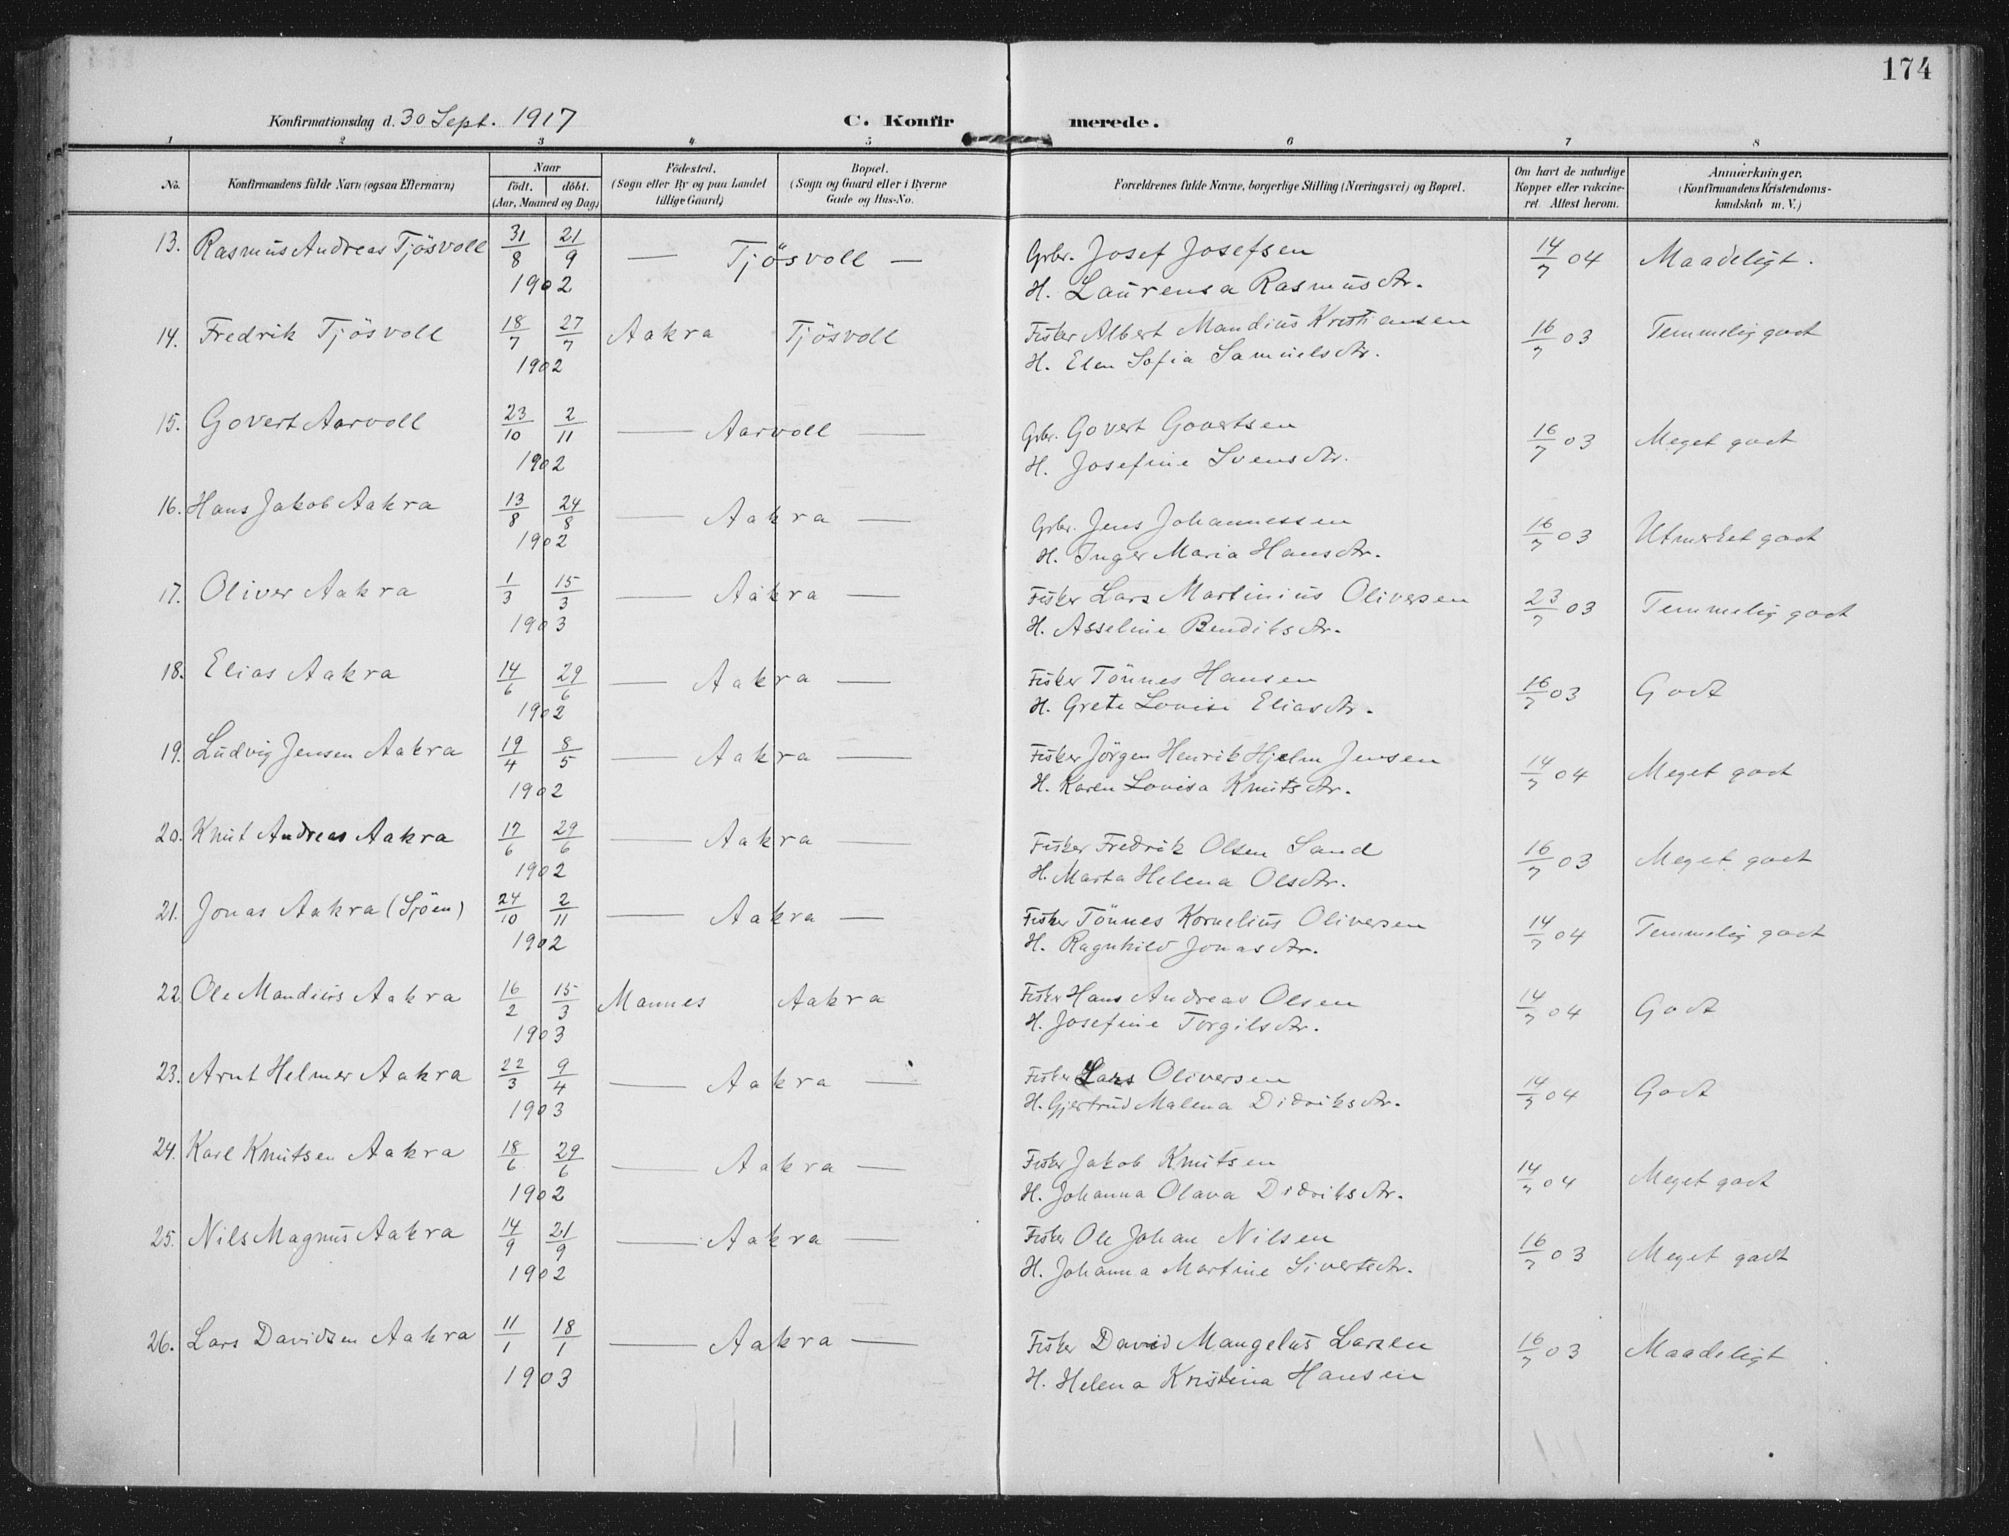 174
Konfirmationsdag d. 30 Sept. 1917 C. Konfirmerede.
1 2 3 4 5 6 7 8
No. Konfirmandens fulde Navn (ogsaa Efternavn) Naar født. døbt. (Aar, Maaned og Dag) Födested. (Sogn eller By og paa Landet tillige Gaard) Bopæl. (Sogn og Gaard eller i Byerne Gade og Hus-No. Forældrenes fulde Navne, borgerlige Stilling (Næringsvei) og Bopæl. Om havt de naturlige Kopper eller vakcineret Attest herom. Anmærkninger. (Konfirmandens Kristendomskundskab m. V.)
13. Rasmus Andreas Tjösvoll 31/8 21/9 — Tjösvoll — Grbr. Josef Josefsen 14/7 04 Maadeligt.
1902 H. Laurensa Rasmusdtr.
14. Fredrik Tjösvoll 18/7 27/7 Aakra Tjösvoll Fisker Albert Mandius Kristiansen 16/7 03 Temmelig godt
1902 H. Elen Sofia Samuelsdtr.
15. Govert Aarvoll 23/10 2/11 — Aarvoll — Grbr. Govert Govertsen 16/7 03 Meget godt
1902 H. Josefine Svensdtr.
16. Hans Jakob Aakra 13/8 24/8 — Aakra — Grbr. Jens Johannessen 16/7 03 Utmerket godt
1902 H. Inger Maria Hansdtr.
17. Oliver Aakra 1/3 15/3 — Aakra — Fisker Lars Martinius Oliversen 23/7 03 Temmelig godt
1903 H. Asseline Benditsdtr.
18. Elias Aakra 14/6 29/6 — Aakra — Fisker Tönnes Hansen 16/7 03 Godt
1902 H. Grete Lovise Eliasdtr.
19. Ludvig Jensen Aakra 19/4 8/5 — Aakra — Fisker Jörgen Henrik Hjelm Jensen 14/7 04 Meget godt
1902 H. Karen Lovisa Knutsdtr.
20. Knut Andreas Aakra 17/6 29/6 — Aakra — Fisker Fredrik Olsen Sand 16/7 03 Meget godt
1902 H. Marta Helena Olsdtr.
21. Jonas Aakra (Sjöen) 24/10 2/11 — Aakra — Fisker Tönnes Kornelius Oliversen 14/7 04 Temmelig godt
1902 H. Ragnhild Jonasdtr.
22. Ole Mandius Aakra 16/2 15/3 Mannes Aakra Fisker Hans Andreas Olsen 14/7 04 Godt
1903 H. Josefine Torgilsdtr.
23. Arnt Helmer Aakra 22/3 9/4 — Aakra — Fisker Lars Oliversen 14/7 04 Godt
1903 H. Gjertrud Malena Didriksdtr.
24. Karl Knutsen Aakra 18/6 29/6 — Aakra — Fisker Jakob Knutsen 14/7 04 Meget godt
1902 H. Johanna Olava Didriksdtr.
25. Nils Magnus Aakra 14/9 21/9 — Aakra — Fisker Ole Johan Nilsen 16/7 03 Meget godt
1902 H. Johanna Martine Sivertsdtr.
26. Lars Davidsen Aakra 11/1 18/1 — Aakra — Fisker David Mangelus Larsen 16/7 03 Maadeligt
1903 H. Helena Kristina Hansen